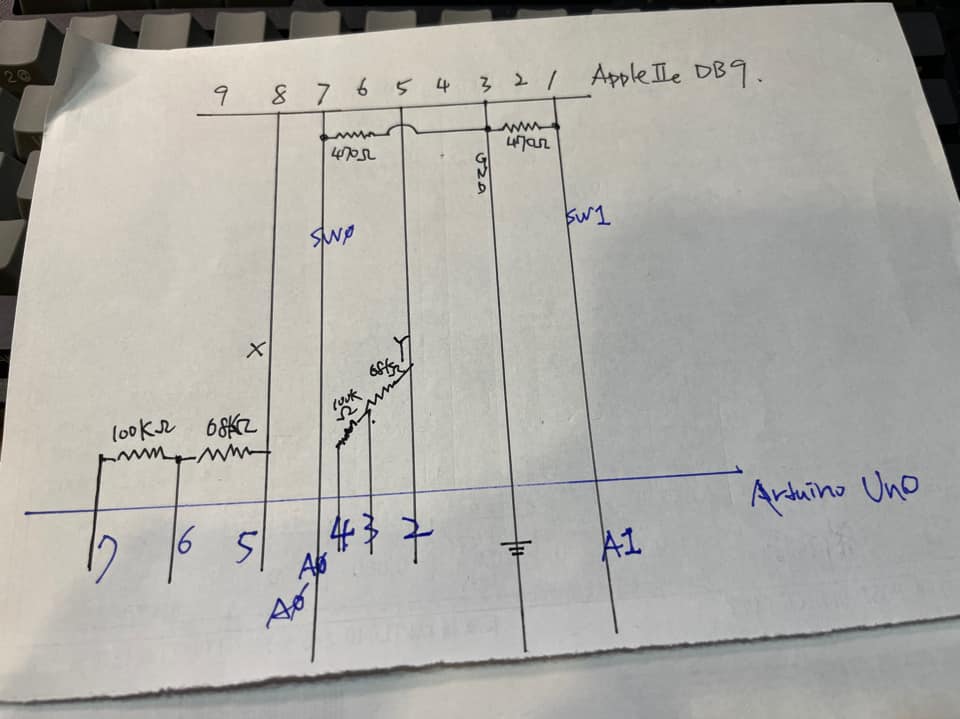 9 8 7 6 5 4 3 2 1 Apple IIe DB9.
470Ω 470Ω
GND
SW0 SW1
X Y
68KΩ
100KΩ
100KΩ 68KΩ
Arduino Uno
7 6 5 4 3 2
A0 A1
A0